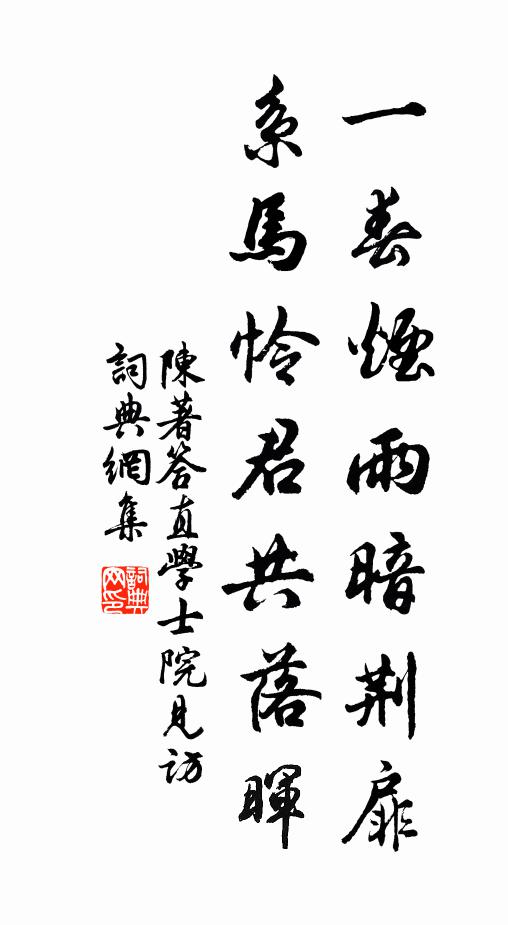 一春煙雨暗荆扉
系馬怜君共落暉
陳著答直學士院見訪
詞典網集
詞典
网印